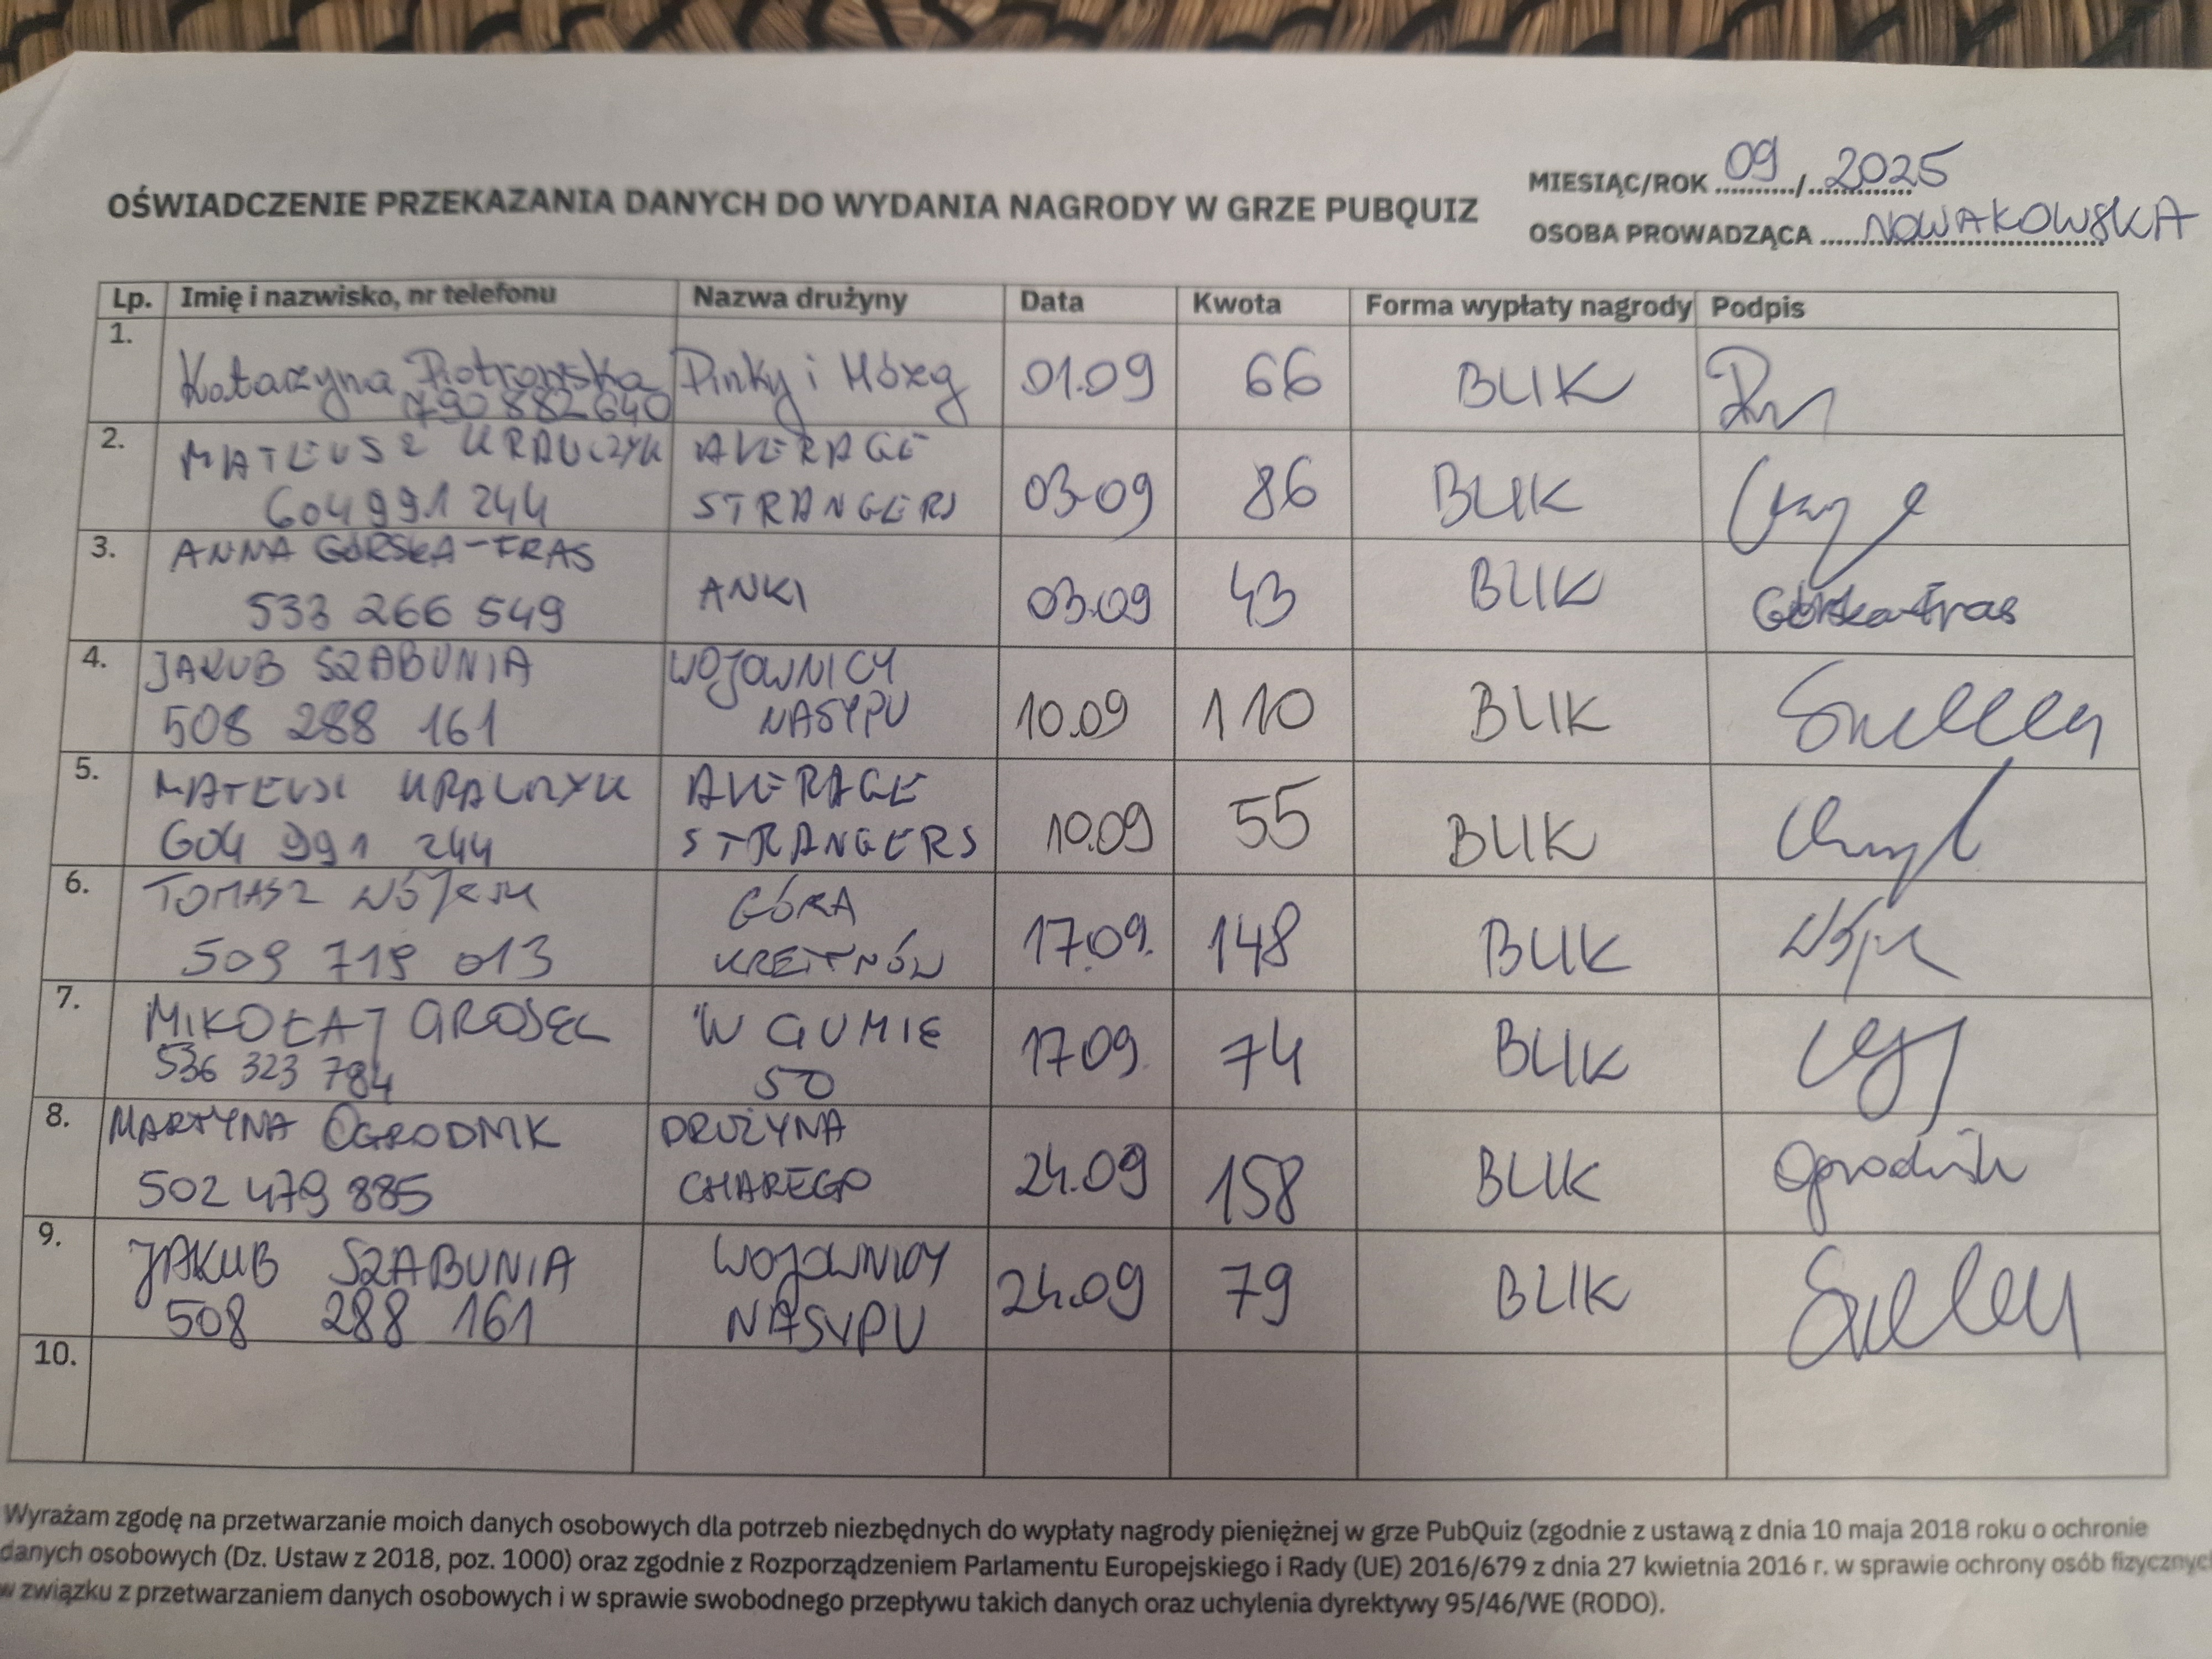 MIESIĄC/ROK 09/2025
OŚWIADCZENIE PRZEKAZANIA DANYCH DO WYDANIA NAGRODY W GRZE PUBQUIZ
OSOBA PROWADZĄCA NOWAKOWSKA
Lp. Imię i nazwisko, nr telefonu Nazwa drużyny Data Kwota Forma wypłaty nagrody Podpis
1.
Katarzyna Piotrowska Pinky i Mózg 01.09 66 BLIK
790 882 640
2.
MATEUSZ KRAWCZYK AVERAGE
604 991 244 STRANGERS 03.09 86 BLIK
3.
ANNA GÓRSKA-FRAS
533 266 549 ANKI 03.09 43 BLIK Górska-Fras
4.
JAKUB SZABUNIA WOJOWNICY
508 288 161 NASYPU 10.09 110 BLIK
5.
MATEUSZ KRAWCZYK AVERAGE
604 991 244 STRANGERS 10.09 55 BLIK
6.
TOMASZ WÓJCIK GÓRA
509 719 013 KRETYNÓW 17.09. 148 BLIK
7.
MIKOŁAJ W GUMIE
536 323 784 50 17.09. 74 BLIK
8.
MARTYNA OGRODNIK DRUŻYNA
502 479 885 CHAREGO 24.09 158 BLIK Ogrodnik
9.
JAKUB SZABUNIA WOJOWNICY
508 288 161 NASYPU 24.09 79 BLIK
10.
Wyrażam zgodę na przetwarzanie moich danych osobowych dla potrzeb niezbędnych do wypłaty nagrody pieniężnej w grze PubQuiz (zgodnie z ustawą z dnia 10 maja 2018 roku o ochronie
danych osobowych (Dz. Ustaw z 2018, poz. 1000) oraz zgodnie z Rozporządzeniem Parlamentu Europejskiego i Rady (UE) 2016/679 z dnia 27 kwietnia 2016 r. w sprawie ochrony osób fizycznych
w związku z przetwarzaniem danych osobowych i w sprawie swobodnego przepływu takich danych oraz uchylenia dyrektywy 95/46/WE (RODO).